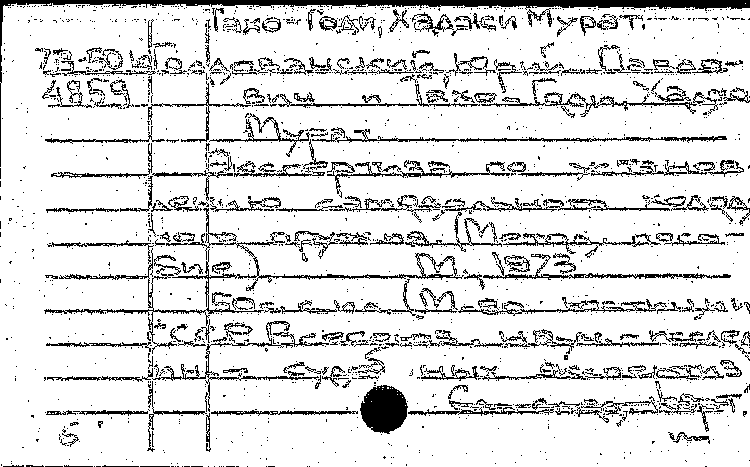 Тахо-Годи, Хаджи Мурат.
73-50 Голдованский, Юрий Павло-
4859 вич и Тахо-Годи, Хаджи
Мурат.
Экспертиза по установ
лению самодельного холод
ного оружия. (Метод. посо-
бие) М., 1973
50 с. с ил. (М-во юстиции
СССР. Всесоюз. науч.-исслед
ин-т судебных экспертиз
См. след. карт.